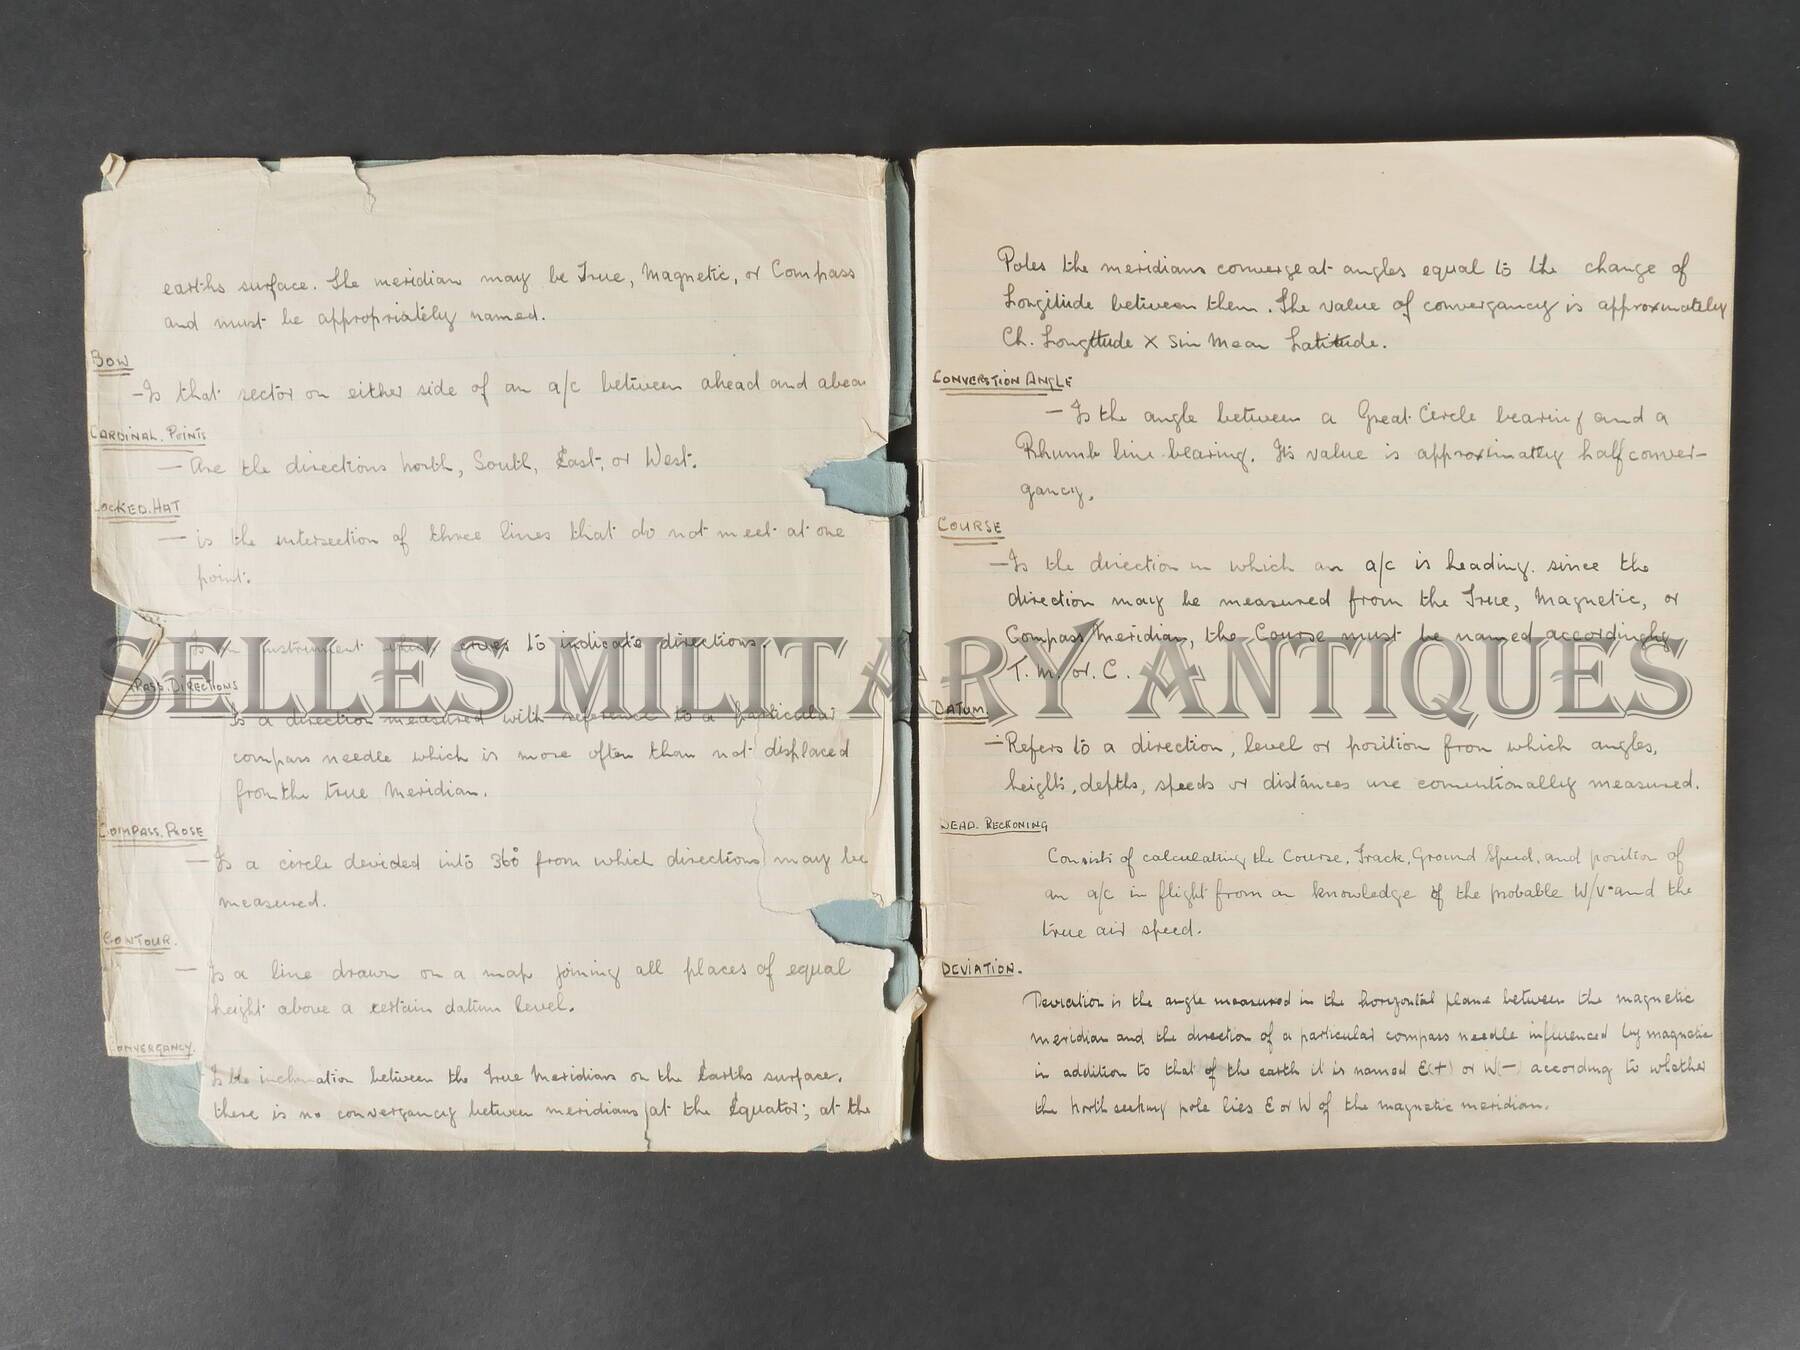 earths surface. The meridian may be True, Magnetic, or Compass
and must be appropriately named.
BOW
– Is that sector on either side of an a/c between ahead and abeam
CARDINAL. POINTS
– Are the directions North, South, East, or West.
COCKED. HAT
– is the intersection of three lines that do not meet at one
point.
Is an instrument which serves to indicate directions.
PASS. DIRECTIONS
Is a direction measured with reference to a particular
compass needle which is more often than not displaced
from the true meridian.
COMPASS. ROSE
– Is a circle devided into 360° from which directions may be
measured.
CONTOUR.
– Is a line drawn on a map joining all places of equal
height above a certain datum level.
CONVERGANCY.
Is the inclination between the True Meridians on the Earths surface.
there is no convergancy between meridians at the Equator; at the
Poles the meridians converge at angles equal to the change of
Longitude between them. The value of convergancy is approximately
Ch. Longitude x Sin Mean Latitude.
CONVERSTION ANGLE
– Is the angle between a Great Circle bearing and a
Rhumb line bearing. Its value is approximatley half conver-
gancy.
COURSE
– Is the direction in which an a/c is heading. since the
direction may be measured from the True, Magnetic, or
Compass Meridian, the Course must be named accordingly
T. M. or. C.
DATUM.
– Refers to a direction, level or position from which angles,
heights, depths, speeds or distances are conventionally measured.
DEAD. RECKONING
Consists of calculating the Course, Track, Ground Speed, and position of
an a/c in flight from an knowledge of the probable W/V and the
true air speed.
DEVIATION.
Deviation is the angle measured in the horizontal plane between the magnetic
meridian and the direction of a particular compass needle influenced by magnetic
in addition to that of the earth it is named E(+) or W(-) according to whether
the North seeking pole lies E or W of the magnetic meridian.
SELLES MILITARY ANTIQUES